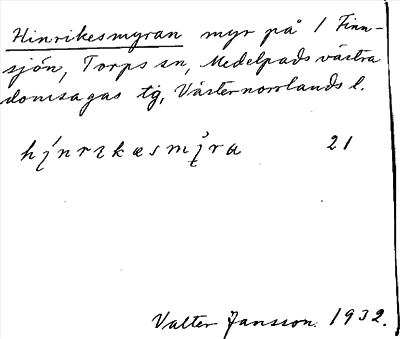 Hinrikesmyran myr på 1 Finn-
sjön, Torps sn, Medelpads västra
domsagas tg, Västernorrlands l.
21
Valter Jansson. 1932.